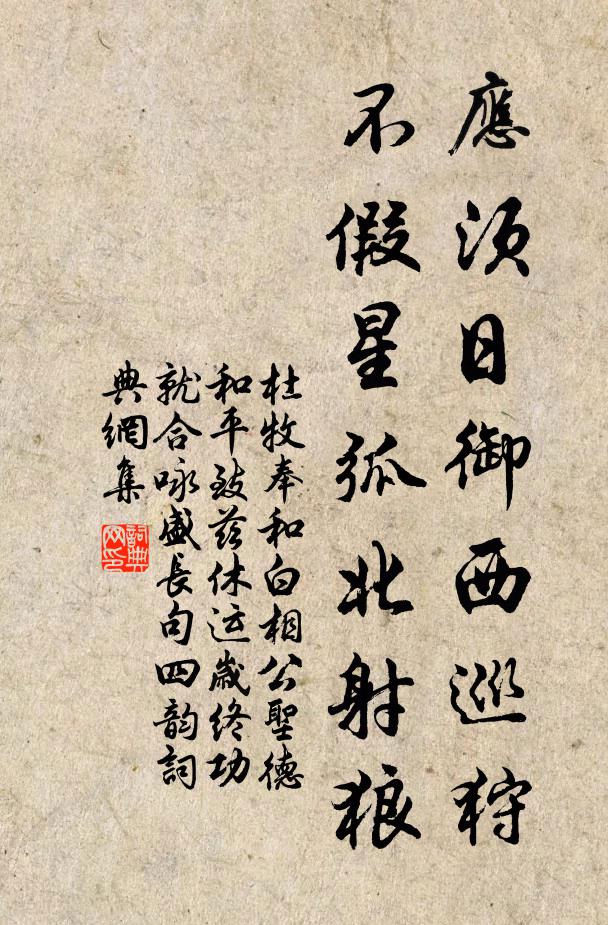 應須日御西巡狩
不假星弧北射狼
杜牧奉和白相公聖德
和平致茲休運歲終功
就合咏盛長句四韵詞
典網集
詞典
网印